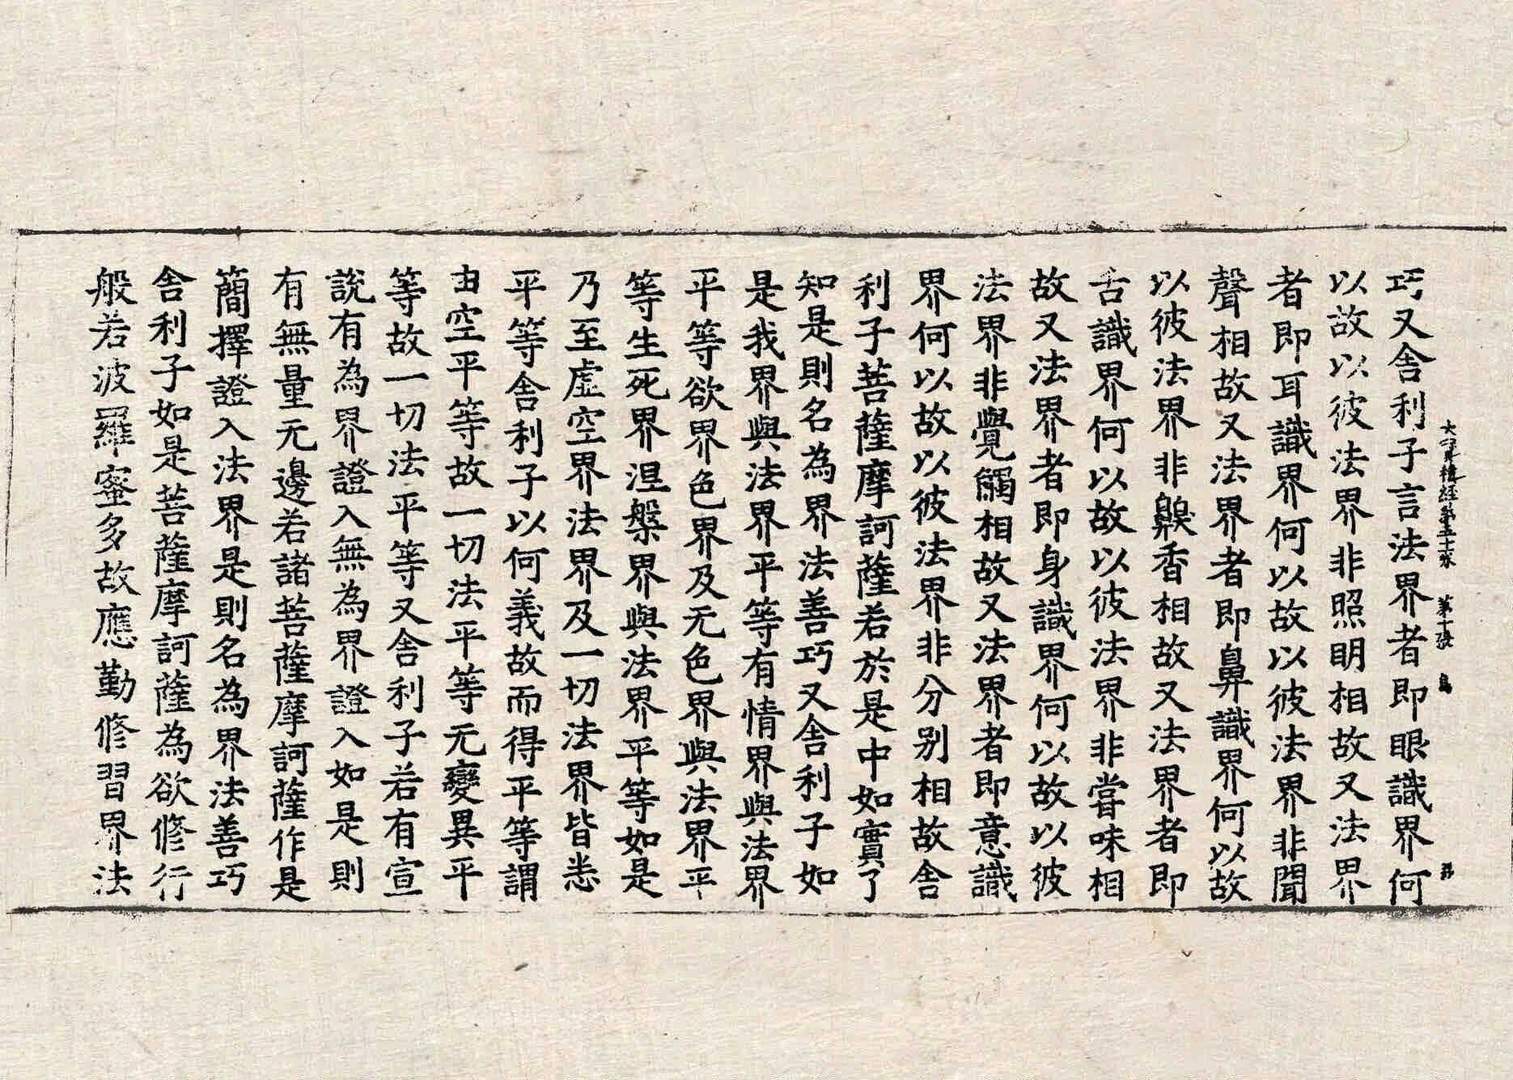 巧又舍利子言法界者即眼識界何
以故以彼法界非照明相故又法界
者即耳識界何以故以彼法界非聞
聲相故又法界者即鼻識界何以故
以彼法界非齅香相故又法界者即
舌識界何以故以彼法界非甞味相
故又法界者即身識界何以故以彼
法界非覺觸相故又法界者即意識
界何以故以彼法界非分别相故舍
利子菩薩摩訶薩若於是中如實了
知是則名為界法善巧又舍利子如
是我界與法界平等有情界與法界
平等欲界色界及无色界與法界平
等生死界涅槃界與法界平等如是
乃至虛空界法界及一切法界皆悉
平等舍利子以何義故而得平等謂
由空平等故一切法平等无變異平
等故一切法平等又舍利子若有宣
說有為界證入無為界證入如是則
有無量无邊若諸菩薩摩訶薩作是
簡擇證入法界是則名為界法善巧
舍利子如是菩薩摩訶薩為欲修行
般若波羅蜜多故應勤修習界法